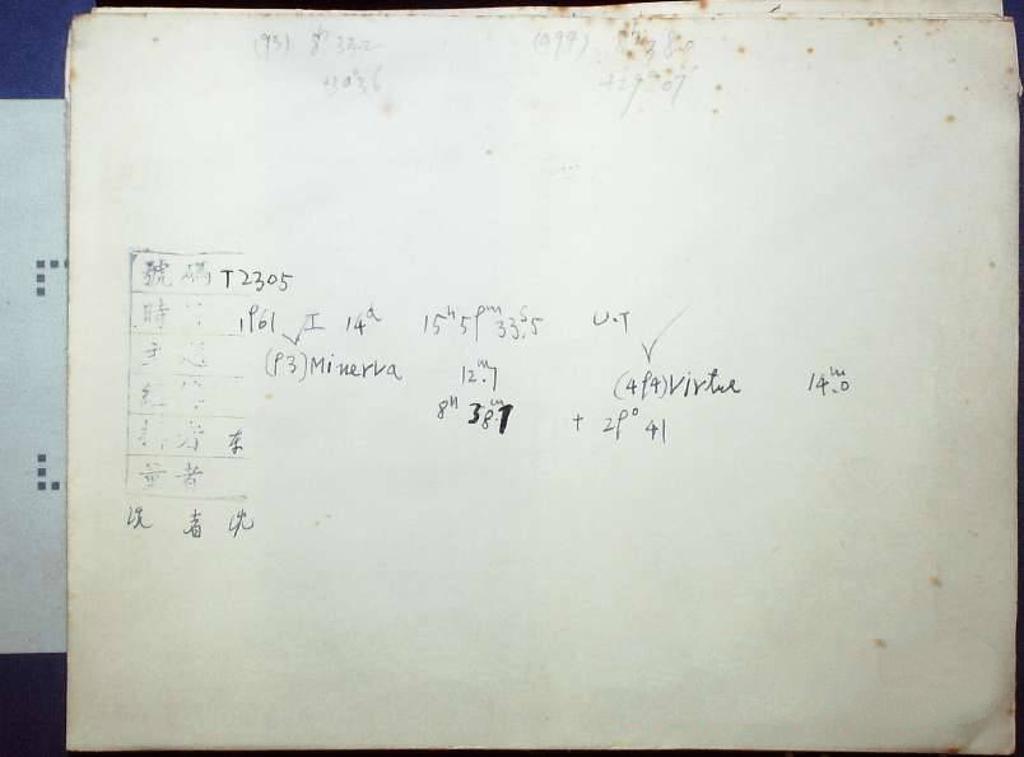 (93) 8h 33.2 (494) 8h 38.8
+30°36 +29°07'
號碼 T2305
時 1961 I 14d 15h 59m 33s.5 U.T
(93) Minerva 12m.7 (494) Virtue 14m.0
8h 38m.7 + 29° 41
者 李
量者
洗者 沈